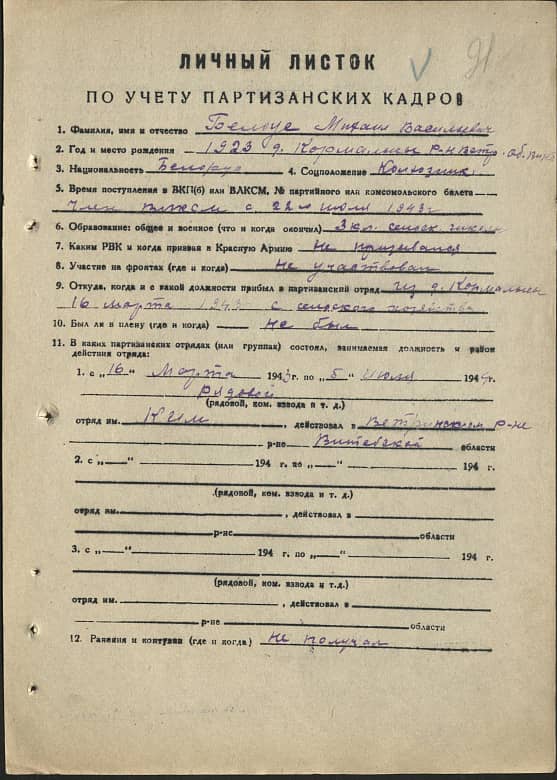 91
ЛИЧНЫЙ ЛИСТОК
ПО УЧЕТУ ПАРТИЗАНСКИХ КАДРОВ
1. Фамилия, имя и отчество Белоус Михаил Васильевич
2. Год и место рождения 1923 д. Кормалысы р-н Ветр.
3. Национальность Белорус 4. Соцположение Колхозник
5. Время поступления в ВКП(б) или ВЛКСМ, № партийного или комсомольского билета
Член ВЛКСМ с 22 июля 1943 г
6. Образование: общее и военное (что и когда окончил) 3 кл. сельск. школы
7. Каким РВК и когда призван в Красную Армию не призывался
8. Участие на фронтах (где и когда) не участвовал
9. Откуда, когда и с какой должности прибыл в партизанский отряд из д. Кормалысы
16 марта 1943 с сельского хозяйства
10. Был ли в плену (где и когда) не был
11. В каких партизанских отрядах (или группах) состоял, занимаемая должность и район
действия отряда:
1. с „16“ Марта 1943 г. по „5“ июля 1944 г.
рядовой
(рядовой, ком. взвода и т. д.)
отряд им. КИМ, действовал в Ветринском р-не
р-не Витебской области
2. с „—“ 194 г. по „—“ 194 г.
(рядовой, ком. взвода и т. д.)
отряд им. , действовал в
р-не области
3. с „—“ 194 г. по „—“ 194 г.
(рядовой, ком. взвода и т.д.)
отряд им. , действовал в
р-не области
12. Ранения и контузии (где и когда) не получал